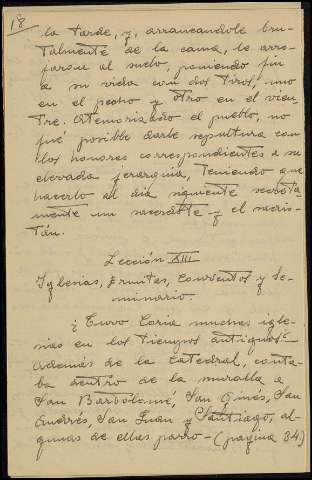 18
la tarde, y, arrancandole bru-
talmente de la cama, le arro-
jaron al suelo, poniendo fin
a su vida con dos tiros, uno
en el pecho y otro en el vien-
tre. Atemorizado el pueblo, no
fué posible darle sepultura con
los honores correspondientes a su
elevada jerarquia, teniendo que
hacerlo al dia siguiente secreta-
mente un sacerdote y el sacris-
tán.
Lección XIII
Iglesias, Ermitas, Conventos y Se-
minario.
¿Tuvo Coria muchas igle-
sias en los tiempos antiguos?
Además de la Catedral, conta-
ba dentro de la muralla a
San Bartolomé, San Ginés, San
Andrés, San Juan y Santiago, al-
gunas de ellas parro- (pagina 34)